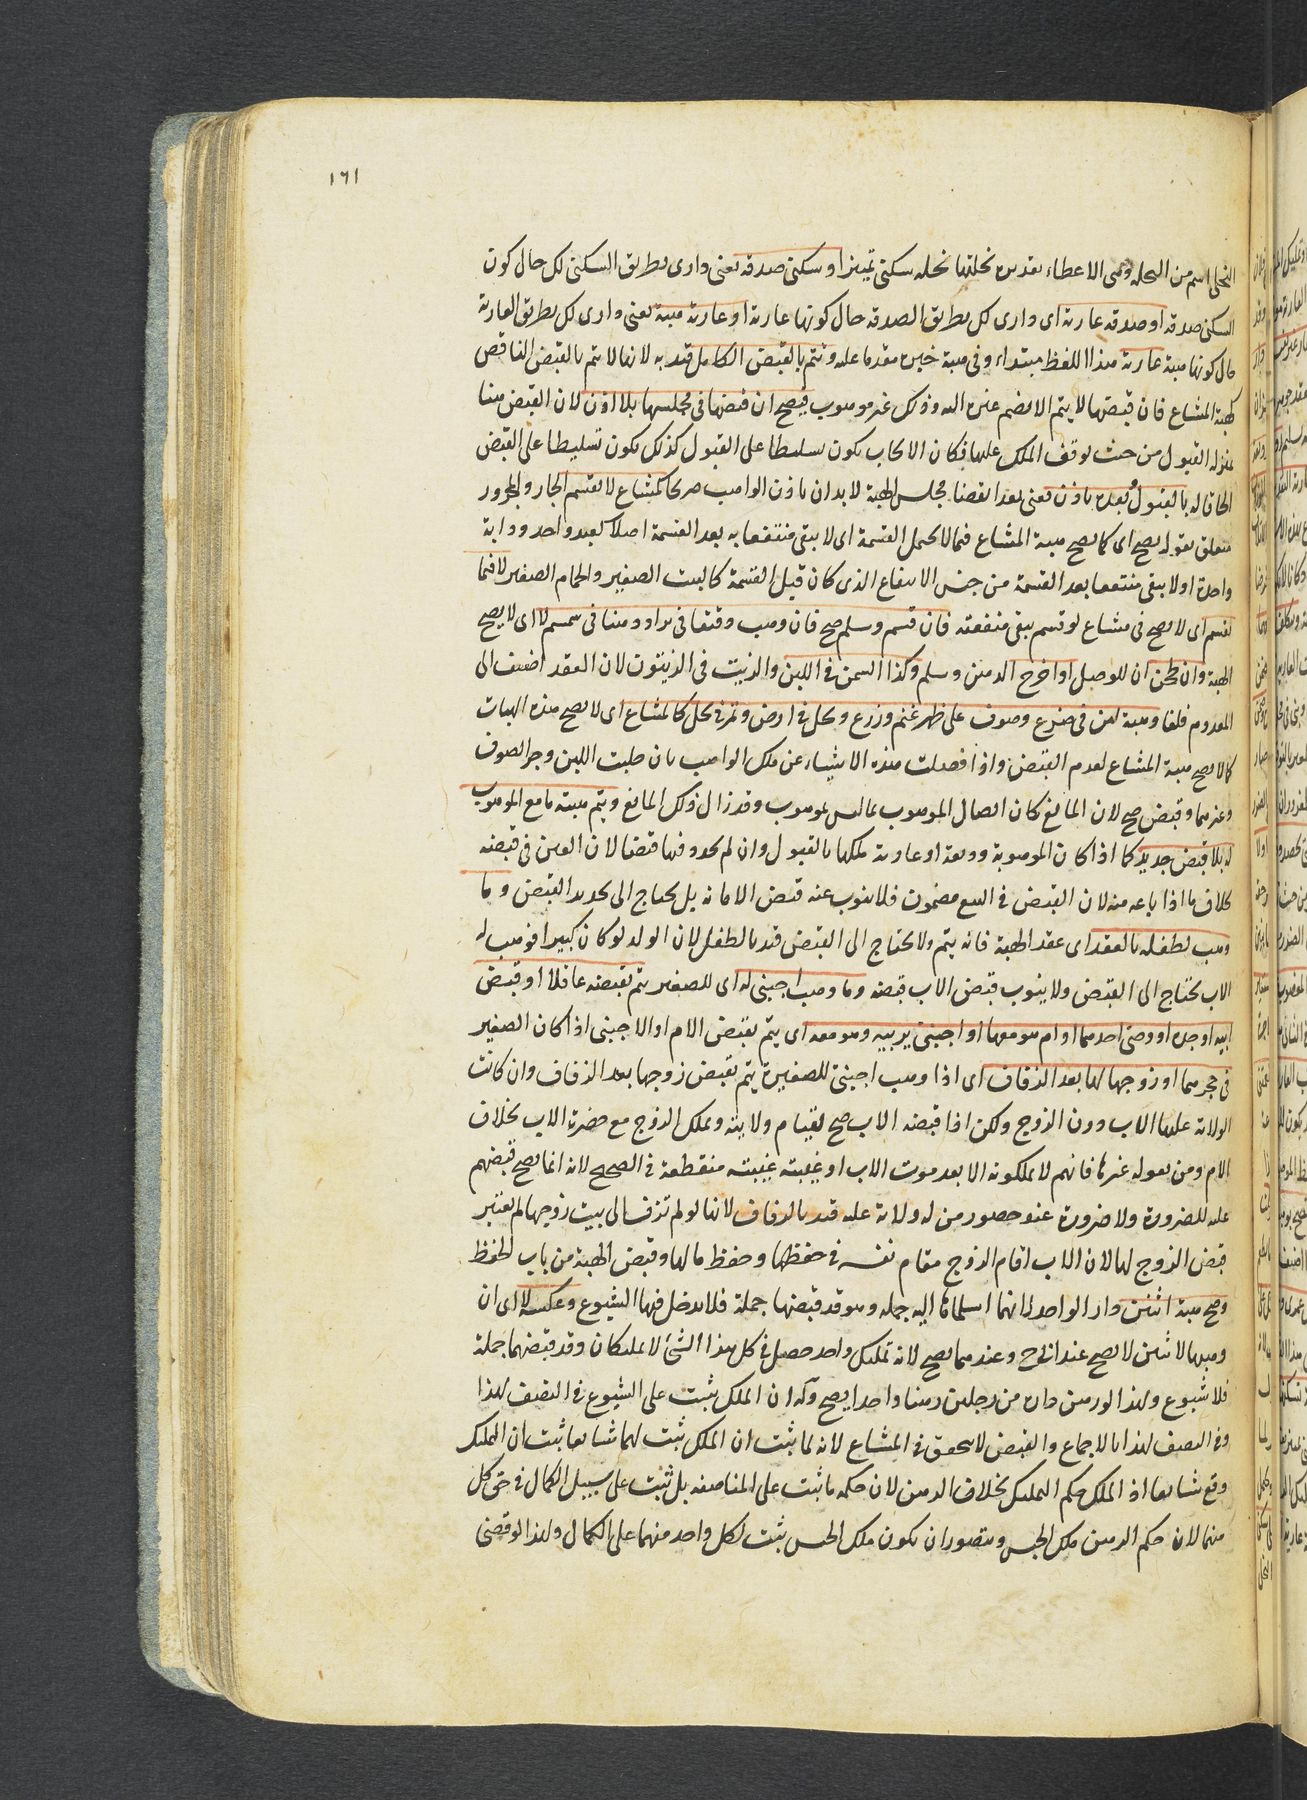 ١٦١
النحلى اسم من النحلة وهى الاعطاء تقديره نحلتها نحلة سكنى تميز او سكنى صدقة يعنى دارى بطريق السكنى لك حال كون
السكنى صدقة او صدقة عارية اى دارى لك بطريق الصدقة حال كونها عارية او عارية هبة يعنى دارى لك بطريق العارية
حال كونها هبة عارية هذا اللفظ مبتداء وفى هبة خبره مقدما عليه وتتم بالقبض الكامل قيد به لانها لا يتم بالقبض الناقص
كهبة المشاع فان قبضها لا يتم الا بضم غيره اليه وذلك غير موهوب فيصح ان قبضها فى مجلسها بلا اذن لان القبض هنا
بمنزلة القبول من حيث توقف الملك عليها فكان الايجاب يكون تسليطا على القبول كذلك يكون تسليطا على القبض
الحاقا له بالقبول وبعده باذن يعنى بعد انقضاء مجلس الهبة لابد ان ياذن الواهب صريحا كمشاع لا يقسم الجار والمجرور
متعلق بقوله يصح اى كما يصح هبة المشاع فيما لا يحتمل القسمة اى لا يبقى منتفعا به بعد القسمة اصلا كعبد واحد ودابة
واحدة او لا يبقى منتفعا بعد القسمة من جنس الانتفاع الذى كان قبل القسمة كالبيت الصغير والحمام الصغير لا فيما
يقسم اى لا يصح فى مشاع لو قسم يبقى منفعته فان قسم وسلم صح فان وهب دقيقا فى بر او دهنا فى سمسم لا اى لا يصح
الهبة وان طحن ان للوصل او اخرج الدهن وسلم وكذا السمن فى اللبن والزيت فى الزيتون لان العقد اضيف الى
المعدوم فلغا وهبة لبن فى ضرع وصوف على ظهر غنم وزرع ونخل فى ارض وتمر فى نخل كالمشاع اى لا يصح هذه الهبات
كما لا يصح هبة المشاع لعدم القبض واذا فصلت هذه الاشياء عن ملك الواهب بان حلبت اللبن وجز الصوف
وغيرهما وقبض صح لان المانع كان اتصال الموهوب بما ليس بموهوب وقد زال ذلك المانع ويتم هبته ما مع الموهوب
له بلا قبض جديد كما اذا كان الموهوبة وديعة او عارية ملكها بالقبول وان لم يجدد فيها قبضا لان العين فى قبضه
بخلاف ما اذا باعه منه لان القبض فى البيع مضمون فلا ينوب عنه قبض الامانة بل يحتاج الى تجديد القبض وما
وهب لطفله بالعقد اى عقد الهبة فانه يتم ولا يحتاج الى القبض قيد بالطفل لان الولد لو كان كبيرا فوهب له
الاب يحتاج الى القبض ولا ينوب قبض الاب قبضه وما وهب اجنبى له اى للصغير يتم بقبضه عاقلا او قبض
ابيه او جده او وصى احدهما او ام هو معها او اجنبى يربيه وهو معه اى يتم بقبض الام او الاجنبى اذا كان الصغير
فى حجرهما او زوجها لها بعد الزفاف اى اذا وهب اجنبى للصغيرة يتم بقبض زوجها بعد الزفاف وان كانت
الولاية عليها الاب دون الزوج ولكن اذا قبضه الاب صح لقيام ولايته ويملك الزوج مع حضرة الاب بخلاف
الام ومن يعوله غيرها فانهم لا يملكونه الا بعد موت الاب او غيبته غيبة منقطعة فى الصحيح لانه انما يصح قبضهم
عليه للضرورة ولا ضرورة عند حضور من له ولاية عليه قيد بالزفاف لانها لو لم تزف الى بيت زوجها لم يعتبر
قبض الزوج لها لان الاب اقام الزوج مقام نفسه فى حفظها وحفظ مالها وقبض الهبة من باب الحفظ
وصح هبة اثنين دار الواحد لانهما سلماها اليه جملة وهو قد قبضها جملة فلا يدخل فيها الشيوع وعكسه لا اى ان
وهبها لاثنين لا يصح عند ابى ح وعندهما يصح لانه تمليك واحد حصل فى كل هذا الشئ لا يملكان وقد قبضهما جملة
فلا شيوع ولهذا لو رهن داره من رجلين رهنا واحدا يصح وله ان الملك يثبت على الشيوع فى النصف لهذا
وفى النصف لهذا بالاجماع والقبض لا يتحقق فى المشاع لانه لما ثبت ان الملك ثبت لهما شايعا ثبت ان التمليك
وقع شايعا اذ الملك حكم التمليك بخلاف الرهن لان حكمه ما ثبت على المناصفة بل ثبت على سبيل الكمال فى حق كل
منهما لان حكم الرهن ملك الحبس ويتصور ان يكون ملك الحبس يثبت لكل واحد منهما على الكمال ولهذا لو قضى